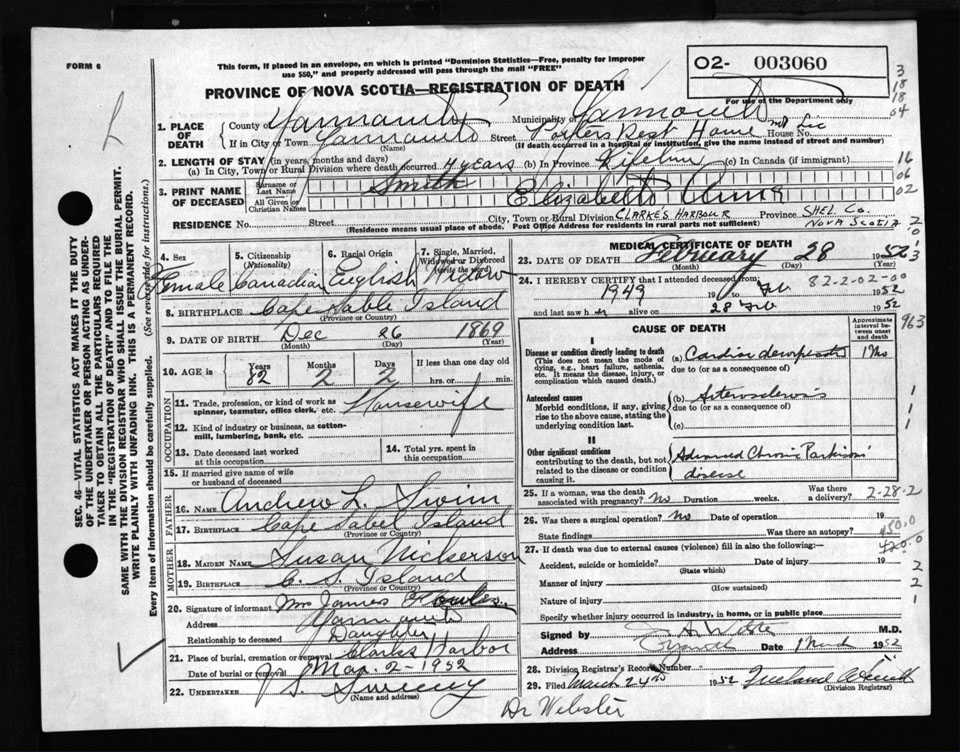 FORM 6
This form, if placed in an envelope, on which is printed "Dominion Statistics—Free, penalty for improper
use $50," and properly addressed will pass through the mail "FREE"
O2- 003060
PROVINCE OF NOVA SCOTIA—REGISTRATION OF DEATH
For use of the Department only
3
18
18
04
1. PLACE OF DEATH
County of Yarmouth Municipality of Yarmouth
If in City or Town Yarmouth Street Rest Home House No.
(Name) (If death occurred in a hospital or institution, give the name instead of street and number)
2. LENGTH OF STAY (in years, months and days)
(a) In City, Town or Rural Division where death occurred 4 years (b) In Province Lifetime (c) In Canada (if immigrant)
16
06
02
3. PRINT NAME OF DECEASED
Surname or Last Name Smith
All Given or Christian Names Elizabeth Anne
RESIDENCE No. Street City, Town or Rural Division CLARKE'S HARBOUR Province SHEL Co. NOVA SCOTIA
(Residence means usual place of abode. Post Office Address for residents in rural parts not sufficient)
4. Sex Female
5. Citizenship (Nationality) Canadian
6. Racial Origin English
7. Single, Married, Widowed or Divorced (write the word) Widow
8. BIRTHPLACE Cape Sable Island
(Province or Country)
9. DATE OF BIRTH Dec 26 1869
(Month) (Day) (Year)
10. AGE in Years 82 Months 2 Days 2 If less than one day old hrs. or min.
OCCUPATION
11. Trade, profession, or kind of work as spinner, teamster, office clerk, etc. Housewife
12. Kind of industry or business, as cotton-mill, lumbering, bank, etc.
13. Date deceased last worked at this occupation
14. Total yrs. spent in this occupation
15. If married give name of wife or husband of deceased
FATHER
16. NAME Andrew L. Swim
17. BIRTHPLACE Cape Sabel Island
(Province or Country)
MOTHER
18. MAIDEN NAME Susan Nickerson
19. BIRTHPLACE C. S. Island
(Province or Country)
20. Signature of informant Mrs James
Address Yarmouth
Relationship to deceased Daughter
21. Place of burial, cremation or removal Clarks Harbor
Date of burial or removal Mar. 2-1952
22. UNDERTAKER Sweeny
(Name and address)
MEDICAL CERTIFICATE OF DEATH
23. DATE OF DEATH February 28 1952
(Month) (Day) (Year)
24. I HEREBY CERTIFY that I attended deceased from 82-2-02
1949 19 to Feb 1952
and last saw h er alive on 28 Feb 1952
963
CAUSE OF DEATH
Approximate interval between onset and death
I
Disease or condition directly leading to death
(This does not mean the mode of dying, e.g., heart failure, asthenia, etc. It means the disease, injury, or complication which caused death.
(a) Cardiac 1 Mo
due to (or as a consequence of)
Antecedent causes
Morbid conditions, if any, giving rise to the above cause, stating the underlying condition last.
(b)
due to (or as a consequence of)
(c)
II
Other significant conditions
contributing to the death, but not related to the disease or condition causing it.
Advanced Chronic Parkinsons
disease
25. If a woman, was the death associated with pregnancy? No Duration weeks. Was there a delivery? 2-28-2
26. Was there a surgical operation? No Date of operation 19
State findings Was there an autopsy?
450.0
420.0
27. If death was due to external causes (violence) fill in also the following:—
Accident, suicide or homicide? Date of injury 19
(State which)
Manner of injury
(How sustained)
Nature of injury
Specify whether injury occurred in industry, in home, or in public place
Signed by M.D.
Address Date 1 March 1952
28. Division Registrar's Record Number
29. Filed March 24th 1952
(Division Registrar)
Dr Webster
SEC. 46—VITAL STATISTICS ACT MAKES IT THE DUTY
OF THE UNDERTAKER OR PERSON ACTING AS UNDER-
TAKER TO OBTAIN ALL THE PARTICULARS REQUIRED
IN THE "REGISTRATION OF DEATH" AND TO FILE THE
SAME WITH THE DIVISION REGISTRAR WHO SHALL ISSUE THE BURIAL PERMIT.
WRITE PLAINLY WITH UNFADING INK. THIS IS A PERMANENT RECORD.
Every item of information should be carefully supplied. (See reverse side for instructions.)